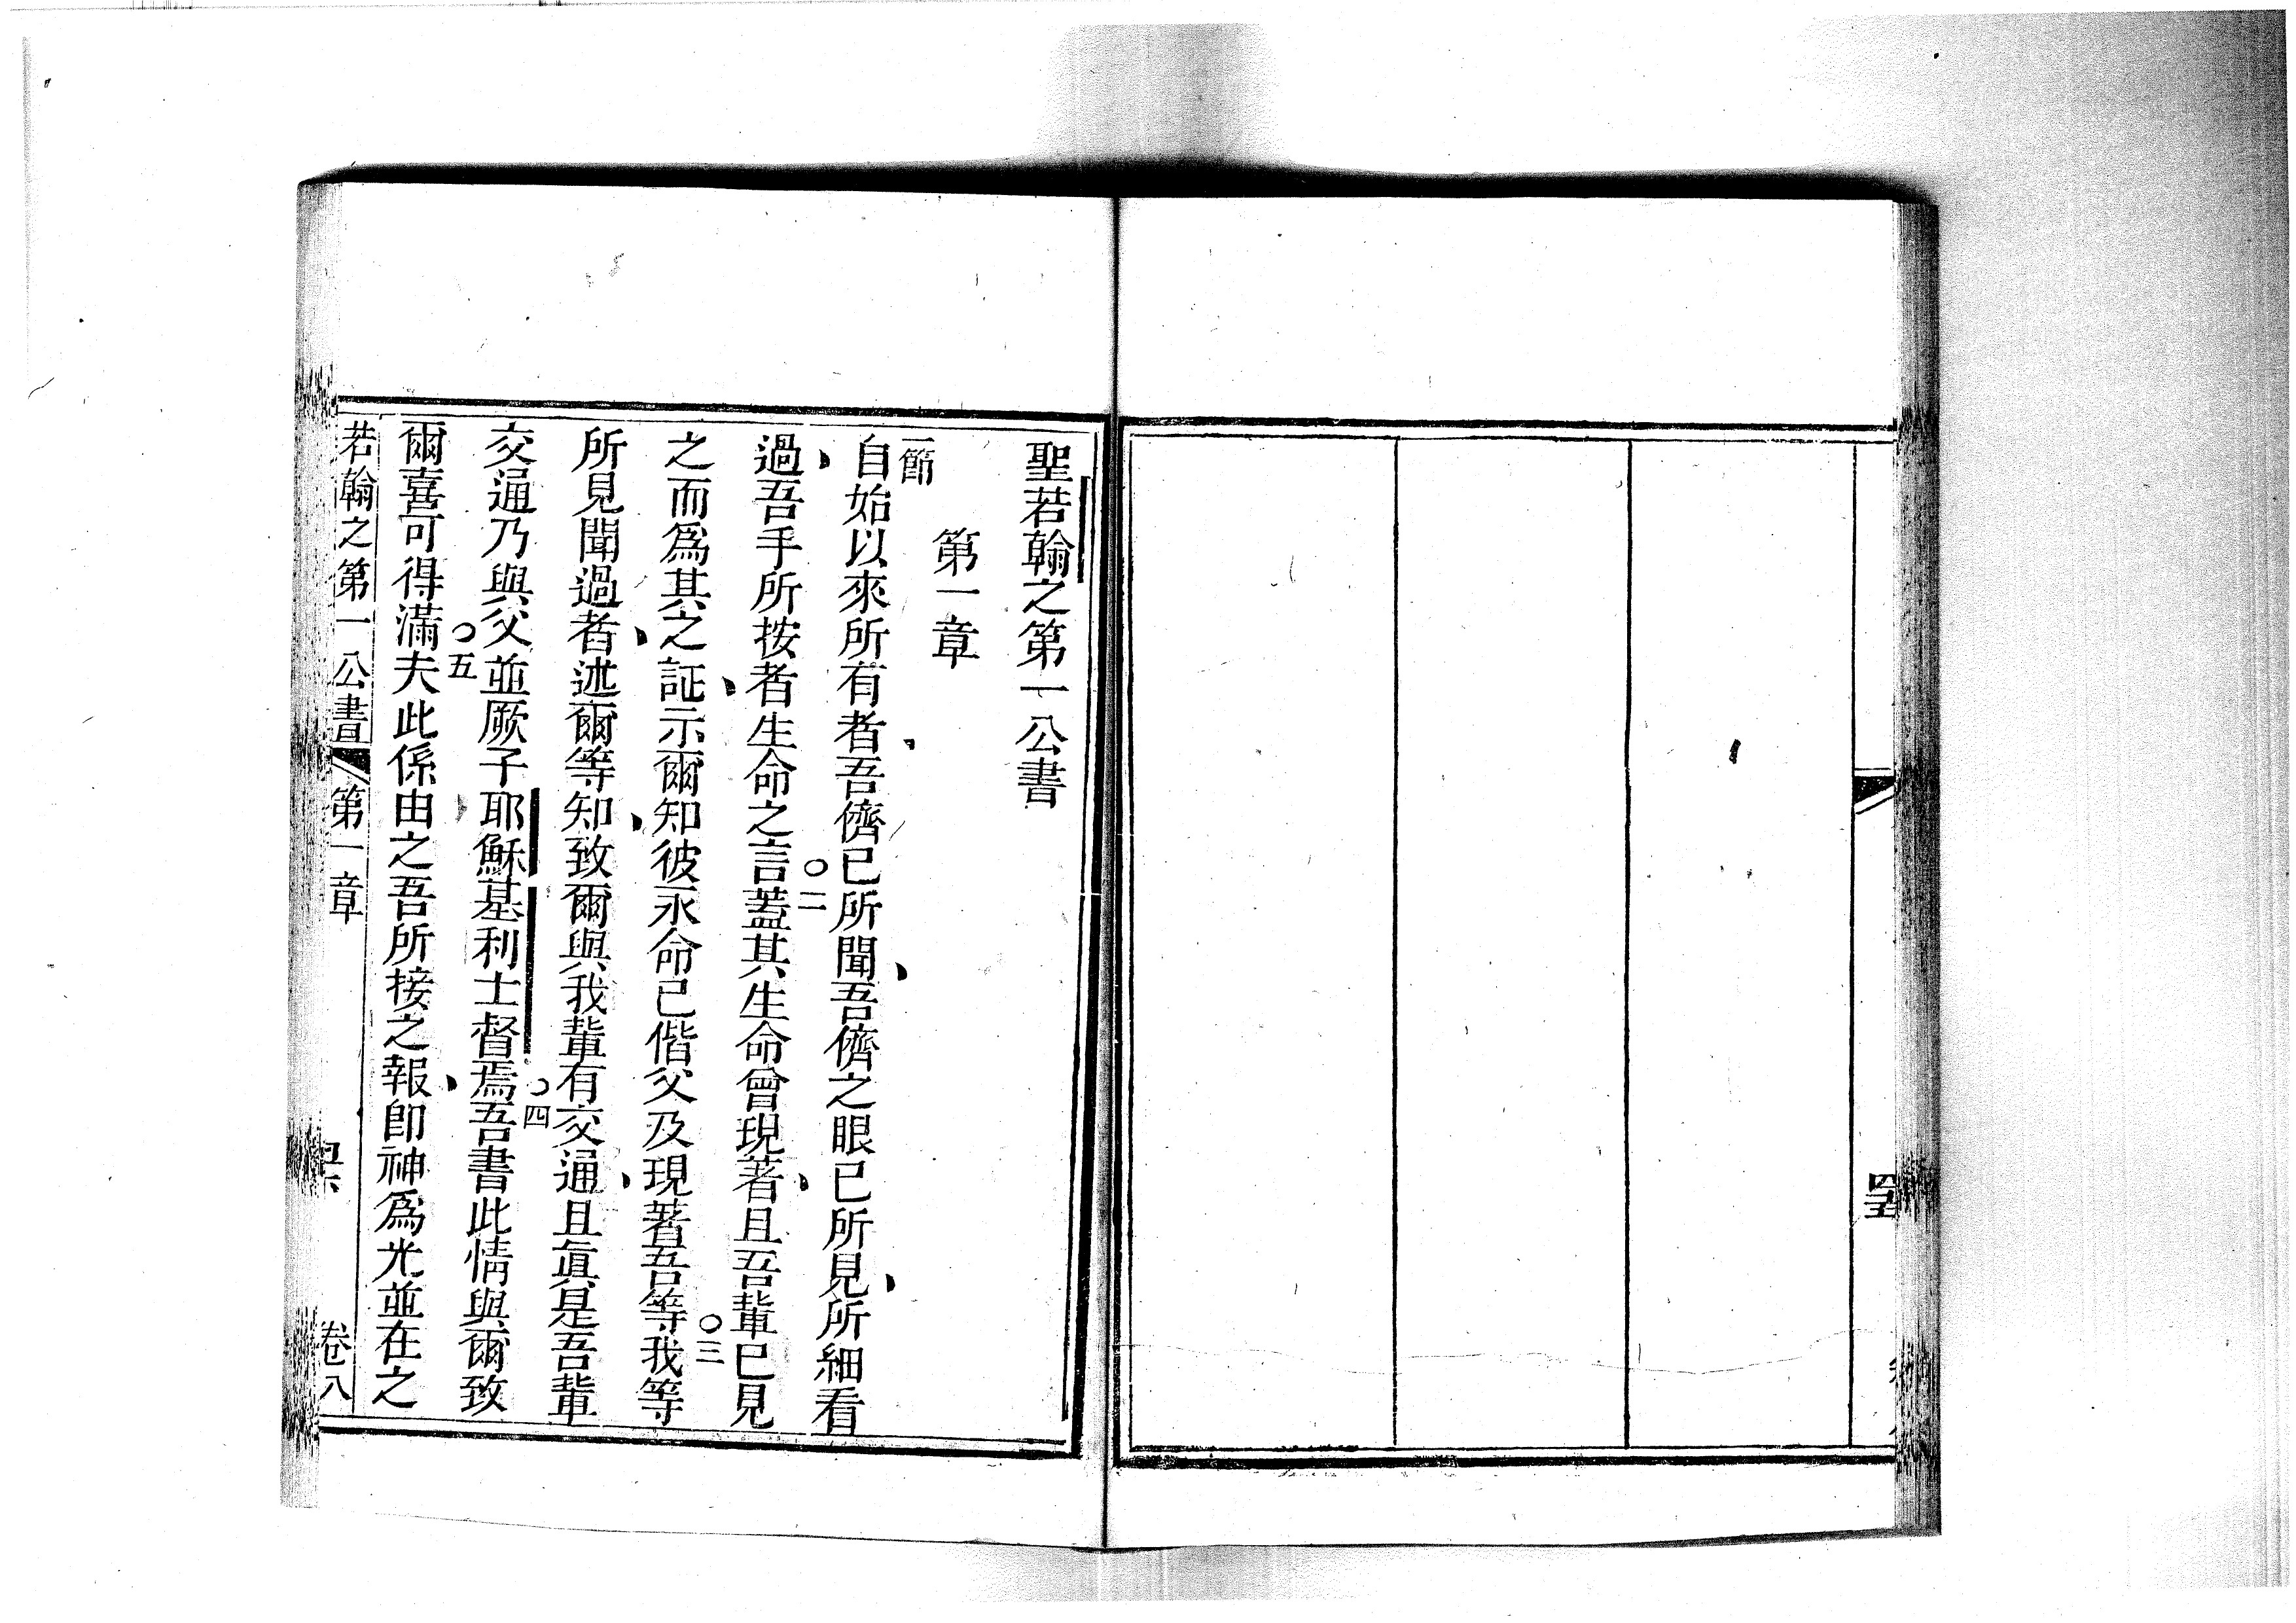 聖若翰之第一公書
第一章
一節
自始以來所有者、吾儕已所聞、吾儕之眼已所見、所細看
過、吾手所按者生命之言○二蓋其生命曾現著、且吾輩已見
之而爲其之証、示爾知彼永命已偕父及現著吾等○三我等
所見聞過者、述爾等知、致爾與我輩有交通、且眞是吾輩
交通乃與父並厥子耶穌基利士督焉○四吾書此情與爾致
爾喜可得滿○五夫此係由之吾所接之報、即神爲光並在之
若翰之第一公書 第一章 卷八